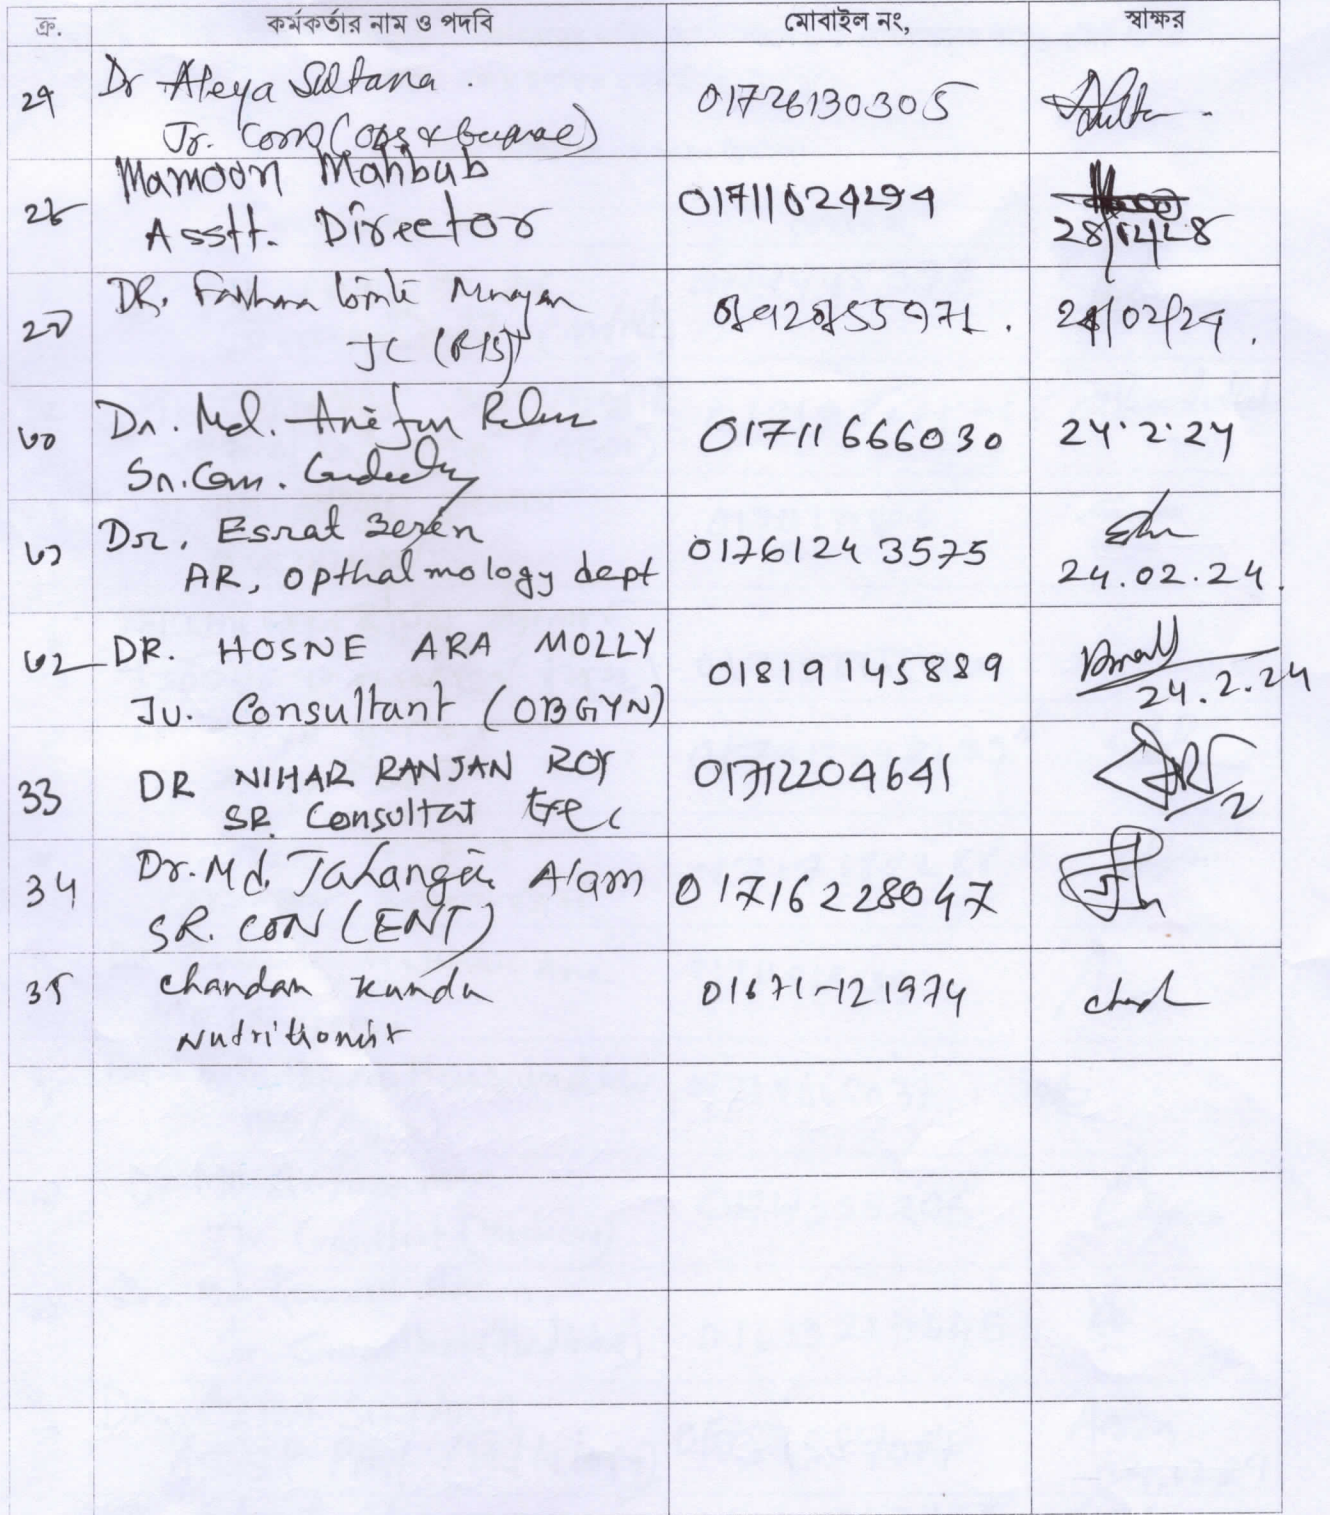 ক্র. কর্মকর্তার নাম ও পদবি মোবাইল নং, স্বাক্ষর
২৭ Dr Aleya Sultana.
Jr. Con (Obs & Gynae) 01726130305
২৮ Mamoon Mahbub
Asstt. Director 01711024294
২৯ DR.
JC 24/02/24.
৩০ Dr. Md. Arifur
Sr. Con. 01711666030 24.2.24
৩১ Dr. Esrat Zerin
AR, Opthalmology dept 01761243575 24.02.24.
৩২ DR. HOSNE ARA MOLLY
Ju. Consultant (OBGYN) 01819145889 24.2.24
33 DR NIHAR RANJAN ROY
SR Consultat 01712204641
34 Dr. Md. Jahangir Alam
SR. CON (ENT) 01716228047
35 Chandan Kundu
Nutritionist 01671-121974